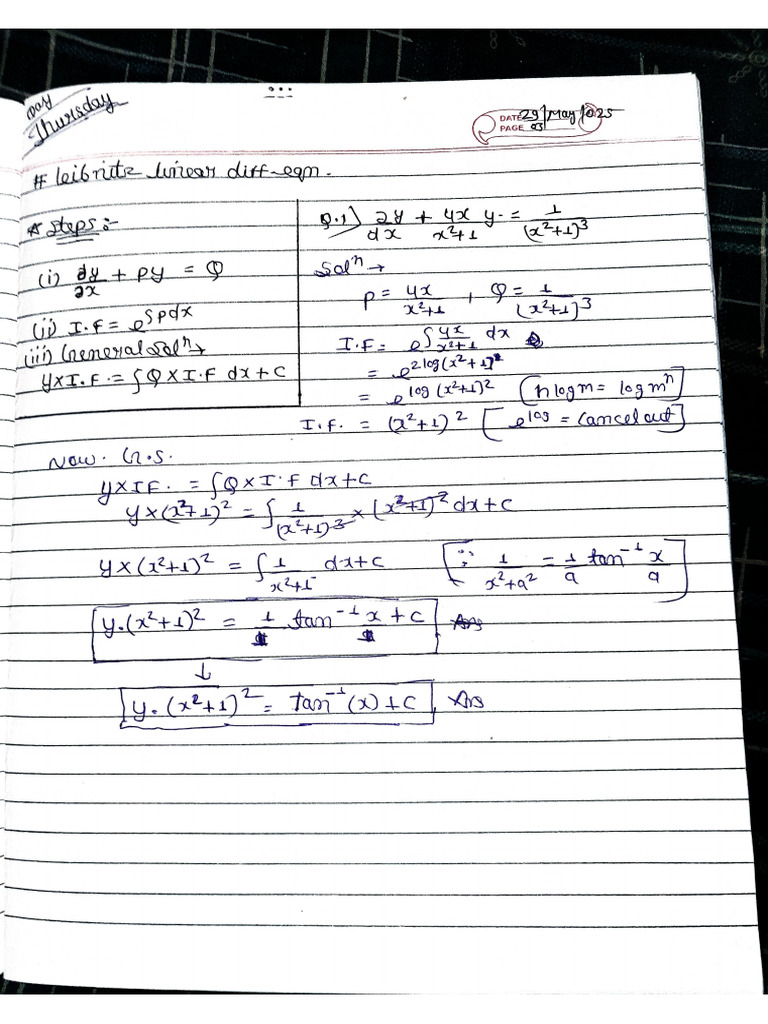 Day
Thursday
DATE 29/May/025
PAGE 03
# Leibnitz linear diff-eqn.
* Steps :-
(i) ∂y/∂x + py = Q
(ii) I.F = e^∫pdx
(iii) General Solⁿ →
y×I.F = ∫Q×I.F dx+c
Q.1) ∂y/dx + 4x/x²+1 y. = 1/(x²+1)³
Solⁿ →
p = 4x/x²+1 , Q = 1/(x²+1)³
I.F = e^∫4x/x²+1 dx
= e^2log(x²+1)
= e^log(x²+1)² [n logm = log mⁿ]
I.F. = (x²+1)² [e^log = Cancel out]
Now. G.S.
y×IF. = ∫Q×I.F dx+c
y×(x²+1)² = ∫1/(x²+1)³ × (x²+1)² dx+c
y×(x²+1)² = ∫1/x²+1 dx+c [∵ 1/x²+a² = 1/a tan⁻¹ x/a]
y.(x²+1)² = 1/1 tan⁻¹ x/1 + c Ans
↓
y.(x²+1)² = tan⁻¹(x)+c Ans